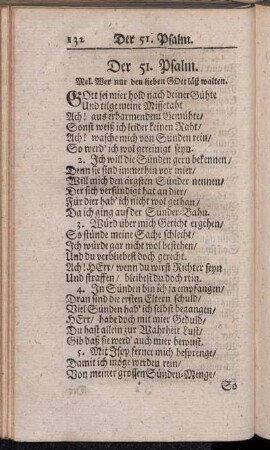 132 Der 51. Psalm.
Der 51. Psalm.
Mel. Wer nur den lieben GOtt läst walten.
GOtt sei mir hold nach deiner Gühte
Und tilge meine Missetaht
Ach! aus erbarmendem Gemühte/
Sonst weiß ich leider keinen Raht/
Ach! wasche mich von Sünden rein/
So werd' ich wol gereinigt seyn.
2. Ich will die Sünden gern bekennen/
Denn sie sind immerhin vor mier/
Will mich den ärgsten Sünder nennen/
Der sich versündigt hat an dier/
Für dier hab' ich nicht wol gethan/
Da ich ging auf der Sünder-Bahn.
3. Würd über mich Gericht ergehen/
So stünde meine Sache schlecht/
Ich würde gar nicht wol bestehen/
Und du verbliebest doch gerecht.
Ach! HErr/ wenn du wirst Richter seyn
Und straffen/ bleibest du doch rein.
4. In Sünden bin ich ja empfangen/
Dran sind die ersten Eltern schuld/
Viel Sünden hab' ich selbst begangen/
HErr/ habe doch mit mier Geduld/
Du hast allein zur Wahrheit Lust/
Gib daß sie werd' auch mier bewust.
5. Mit Isop ferner mich besprenge/
Damit ich möge werden rein/
Von meiner grossen Sünden-Menge/
So